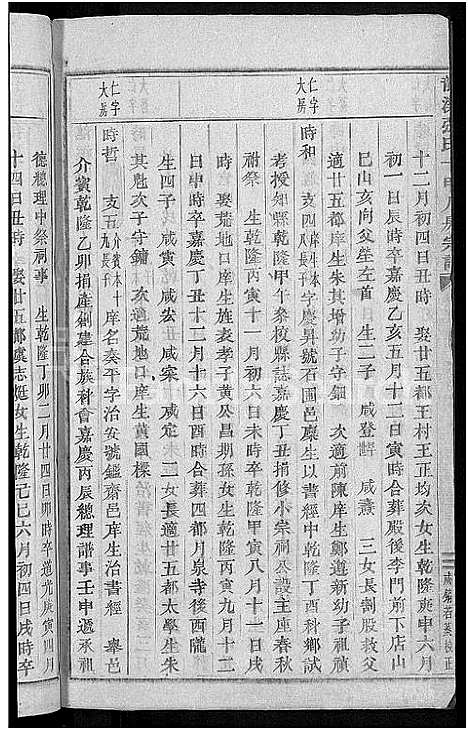 十二月初四日子時　娶廿五都王村王正均次女生乾隆庚申六月
初一日辰時卒嘉慶乙亥五月十二日寅時合葬殿後李門前下店山
巳山亥向父塋左首　生二子　咸登　咸燾　三女長割股救父
適廿五都庠生朱其增幼子守鈿　次適前陳庠生鄭道新幼子
仁字大房
時和　字慶昇號石圃邑廩生以書經中乾隆丁酉科鄉試
考授知縣乾隆甲午叅校縣誌嘉慶丁丑捐修小宗祠公設主座春秋
時饗　生乾隆丙寅十一月初六日未時卒乾隆甲寅八月十一日戌
時　娶廿五都庠生旌表孝子黃公昌期孫女生乾隆丙寅九月十二
日申時卒嘉慶丁丑十二月十六日酉時合葬四都月泉寺後西隴
生四子　咸寅　咸安　咸宷　咸定　二女長適廿五都太學生朱
其㲄次子守鏞　次適荒地口庠生黃國樑
仁字大房
時哲　庠名奏平字治安號鑑齋邑庠生治書經　舉邑
介賓乾隆乙卯捐產剏建合族科會嘉慶丙辰總理譜事壬申遞承祖
德總理中祭祠事　生乾隆丁卯二月廿四日卯時卒道光庚寅四月
十四日丑時　娶廿五都虞志姃女生乾隆己巳六月初四日戌時卒